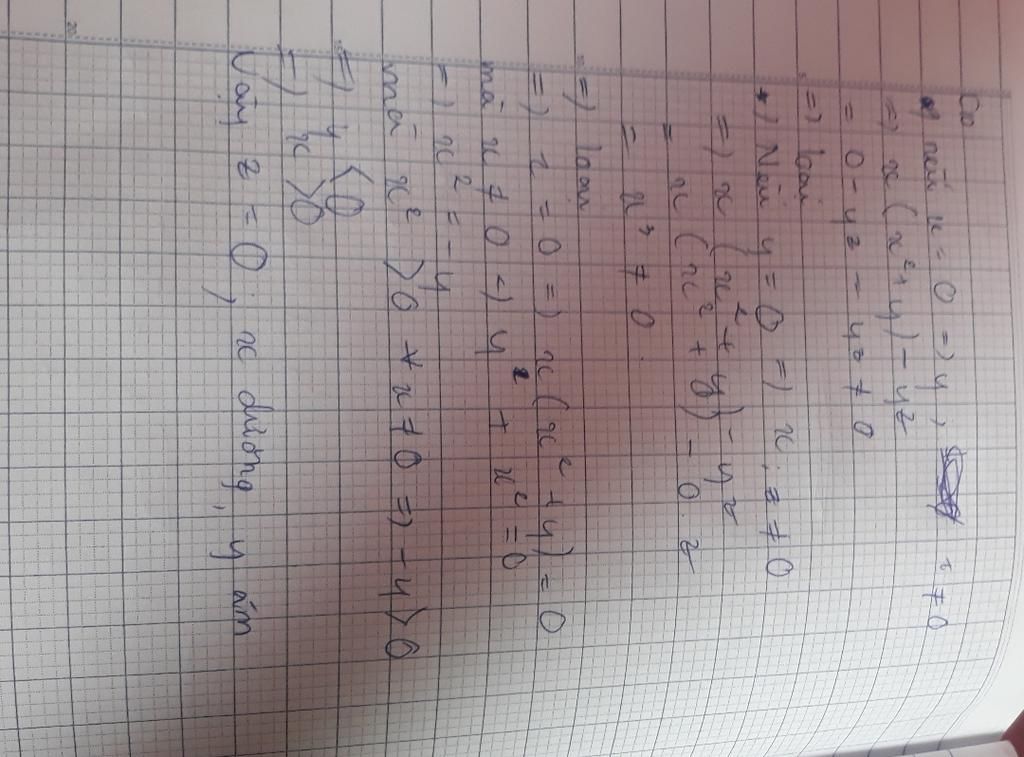 Có
*) Nếu x = 0 => y, z ≠ 0
=) x (x² + y) - yz
= 0 - yz = - yz ≠ 0
=) loại
*) Nếu y = 0 =) x, z ≠ 0
=) x (x² + y) - yz
= x (x² + y) - 0. z
= x³ ≠ 0.
=) loại
=) z = 0 =) x (x² + y) = 0
mà x ≠ 0 =) y + x² = 0
=) x² = - y
mà x² > 0 ∀ x ≠ 0 =) - y > 0
=) y < 0
=) x > 0
Vậy z = 0, x dương, y âm